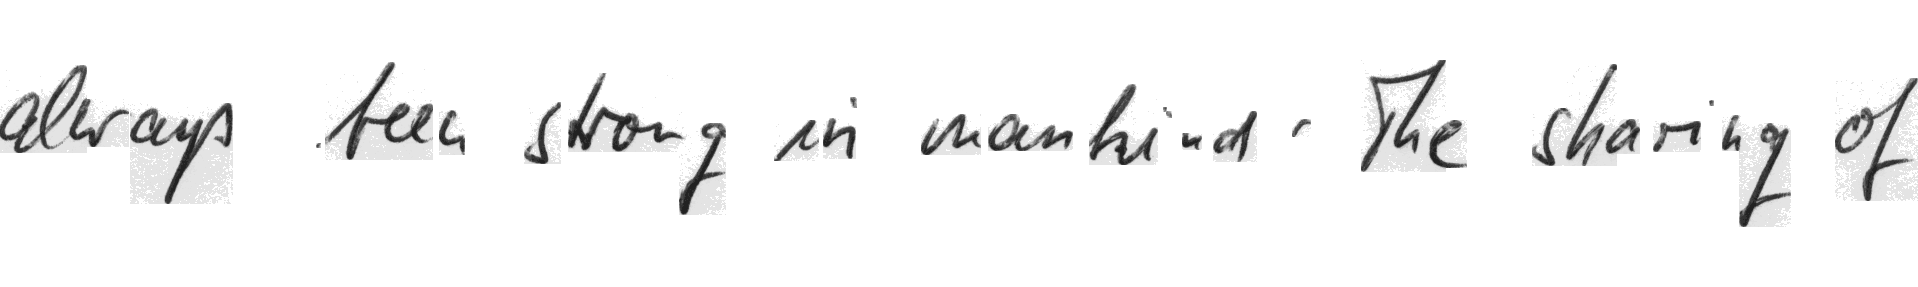 always been strong in mankind. The sharing of